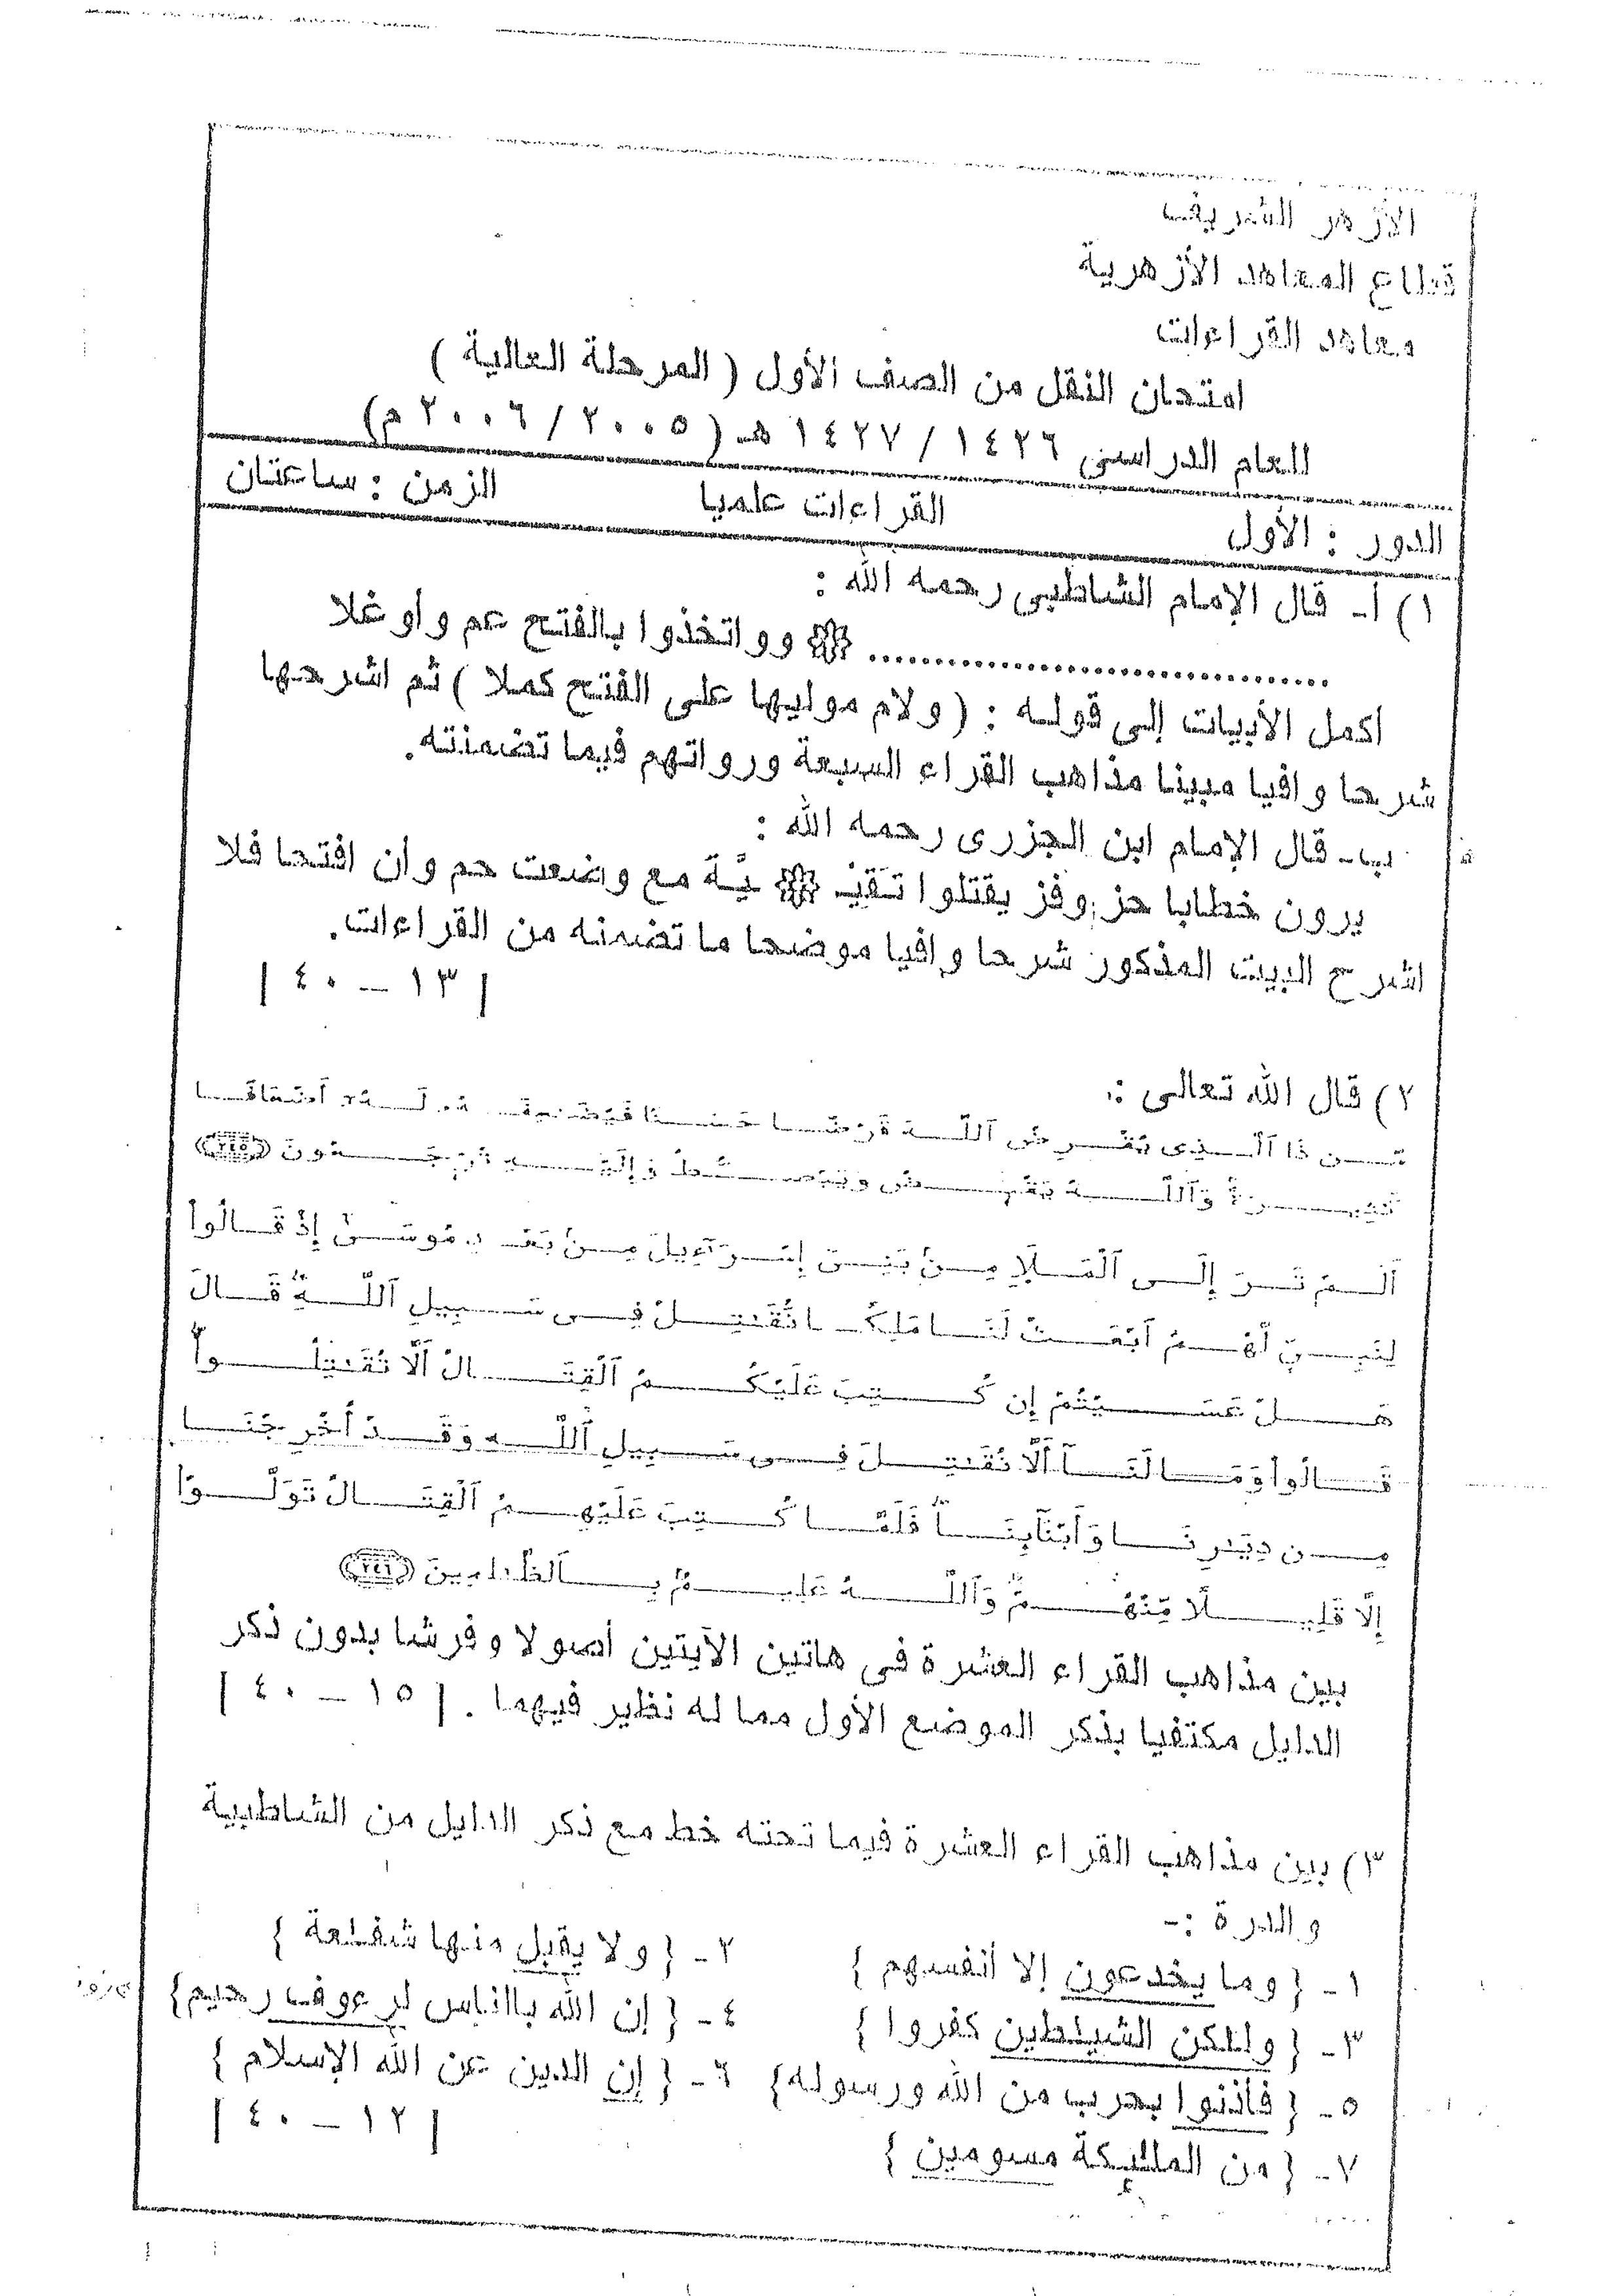 الأزهر الشريف
قطاع المعاهد الأزهرية
معاهد القراءات
امتحان النقل من الصف الأول ( المرحلة العالية )
للعام الدراسى ١٤٢٦ / ١٤٢٧ هـ ( ٢٠٠٥ / ٢٠٠٦ م)
الدور : الأول القراءات علميا الزمن : ساعتان
١ ) أ- قال الإمام الشاطبى رحمه الله :
........................................ ۞ وواتخذوا بالفتح عم وأوغلا
أكمل الأبيات إلى قوله : ( ولام موليها على الفتح كملا ) ثم اشرحها
شرحا وافيا مبينا مذاهب القراء السبعة ورواتهم فيما تضمنته.
ب- قال الإمام ابن الجزرى رحمه الله :
يرون خطابا حز وفز يقتلوا تَقِيْـ ۞ يَّة مع وضعت حم وأن افتحا فلا
اشرح البيت المذكور شرحا وافيا موضحا ما تضمنه من القراءات.
| ١٣ – ٤٠ |
٢ ) قال الله تعالى :
مَّن ذَا ٱلَّذِى يُقْرِضُ ٱللَّهَ قَرْضًا حَسَنًا فَيُضَٰعِفَهُۥ لَهُۥٓ أَضْعَافًا
كَثِيرَةً وَٱللَّهُ يَقْبِضُ وَيَبْصُۜطُ وَإِلَيْهِ تُرْجَعُونَ (٢٤٥)
أَلَمْ تَرَ إِلَى ٱلْمَلَإِ مِنۢ بَنِىٓ إِسْرَٰٓءِيلَ مِنۢ بَعْدِ مُوسَىٰٓ إِذْ قَالُوا۟
لِنَبِىٍّ لَّهُمُ ٱبْعَثْ لَنَا مَلِكًا نُّقَٰتِلْ فِى سَبِيلِ ٱللَّهِ ۖ قَالَ
هَلْ عَسَيْتُمْ إِن كُتِبَ عَلَيْكُمُ ٱلْقِتَالُ أَلَّا تُقَٰتِلُوا۟ ۖ
قَالُوا۟ وَمَا لَنَآ أَلَّا نُقَٰتِلَ فِى سَبِيلِ ٱللَّهِ وَقَدْ أُخْرِجْنَا
مِن دِيَٰرِنَا وَأَبْنَآئِنَا ۖ فَلَمَّا كُتِبَ عَلَيْهِمُ ٱلْقِتَالُ تَوَلَّوْا۟
إِلَّا قَلِيلًا مِّنْهُمْ ۗ وَٱللَّهُ عَلِيمٌۢ بِٱلظَّٰلِمِينَ (٢٤٦)
بين مذاهب القراء العشرة فى هاتين الآيتين أصولا وفرشا بدون ذكر
الدليل مكتفيا بذكر الموضع الأول مما له نظير فيهما . | ١٥ – ٤٠ |
٣ ) بين مذاهب القراء العشرة فيما تحته خط مع ذكر الدليل من الشاطبية
والدرة :-
١- { وما يخدعون إلا أنفسهم } ٢- { ولا يقبل منها شفٰعة }
٣- { ولٰكن الشيٰطين كفروا } ٤- { إن الله بالناس لرءوف رحيم}
٥- { فأذنوا بحرب من الله ورسوله} ٦- { إن الدين عن الله الإسلام }
٧- { من الملٰئكة مسومين } | ١٢ – ٤٠ |